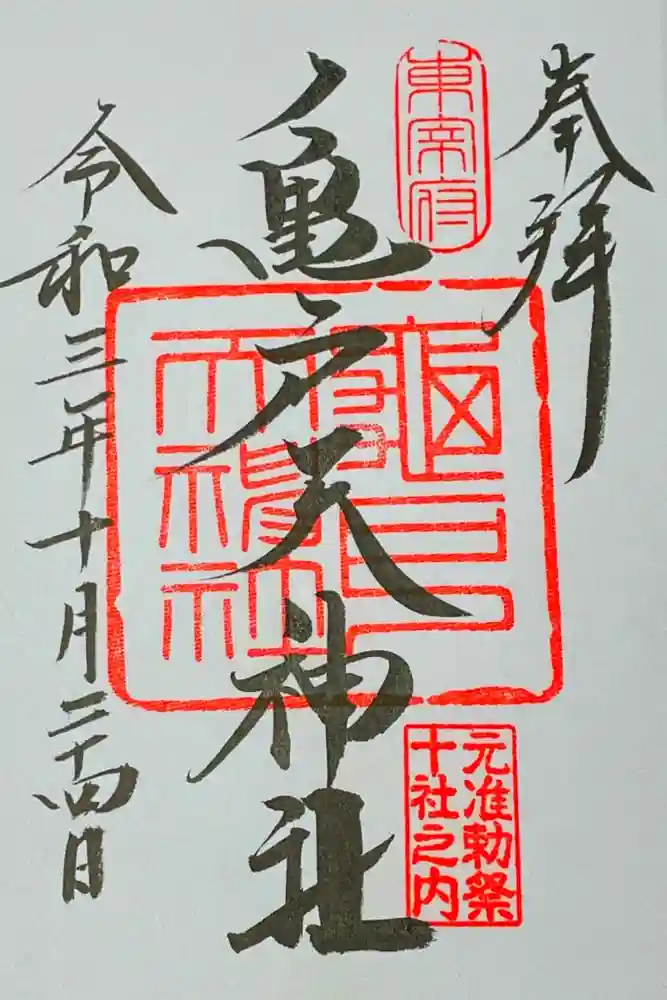 奉拝
東宰府
亀戸天神社
元准勅祭
十社之内
令和三年十月二十四日